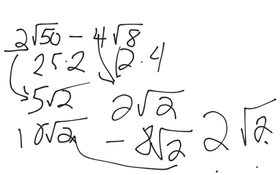 2√50 - 4√8
25·2 2·4
5√2 2√2
10√2 - 8√2 2√2